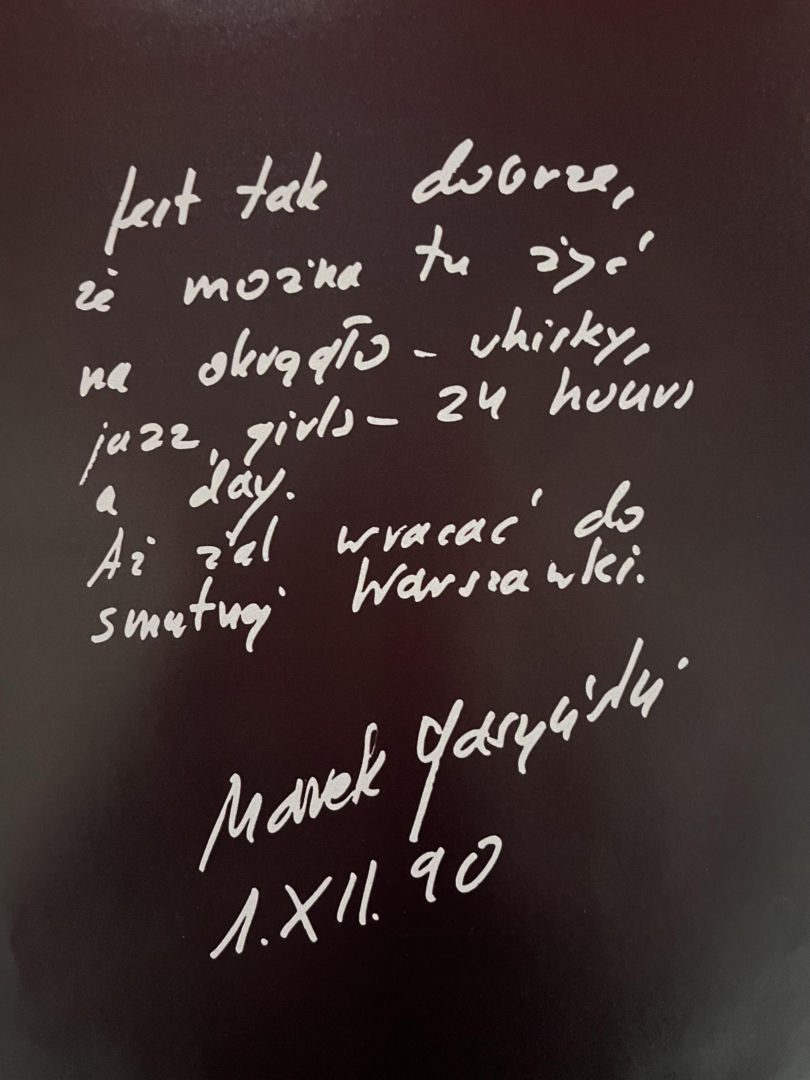 Jest tak dobrze,
że można tu żyć
na okrągło - whisky,
jazz, girls - 24 hours
a day.
Aż żal wracać do
smutnej Warszawki.
Marek
1.XII.90